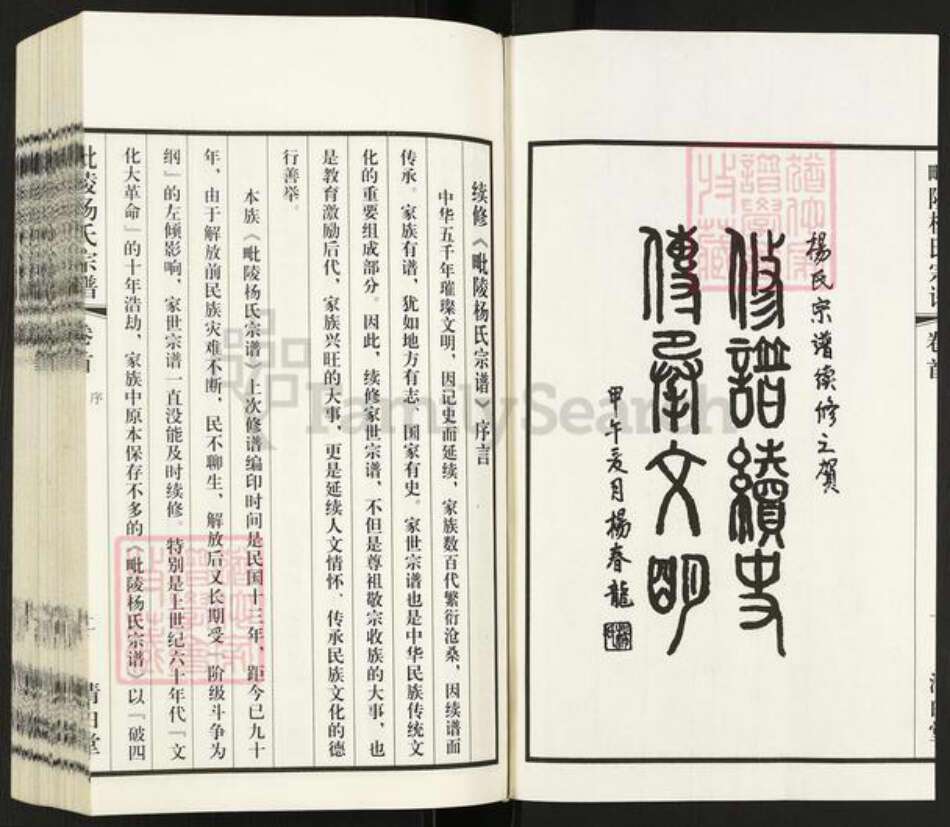 楊氏宗譜续修之贺
修譜續史
傳承文明
甲午夏月楊春龍
毗陵杨氏宗谱
卷首
续修《毗陵杨氏宗谱》序言
中华五千年璀璨文明，因记史而延续，家族数百代繁衍沧桑，因续谱而
传承。家族有谱，犹如地方有志、国家有史。家世宗谱也是中华民族传统文
化的重要组成部分。因此，续修家世宗谱，不但是尊祖敬宗收族的大事，也
是教育激励后代、家族兴旺的大事，更是延续人文情怀、传承民族文化的德
行善举。
本族《毗陵杨氏宗谱》上次修谱编印时间是民国十三年，距今已九十
年，由于解放前民族灾难不断，民不聊生，解放后又长期受『阶级斗争为
纲』的左倾影响，家世宗谱一直没能及时续修。特别是上世纪六十年代『文
化大革命』的十年浩劫，家族中原本保存不多的《毗陵杨氏宗谱》以『破四
毗陵杨氏宗谱
卷首
序
一
清白堂
FamilySearch